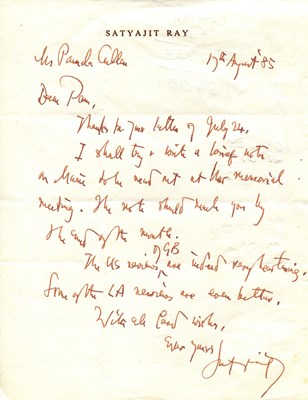 SATYAJIT RAY
Ms Pamela Cullen
17th August '85
Dear Pam,
Thanks for your letter of July 24.
I shall try & write a brief note
on Marie to be read out at her memorial
meeting. The note should reach you by
the end of the month.
of GB
The US reviews are indeed very heartening.
Some of the LA reviews are even better.
With all good wishes,
Ever yours
Satyajit